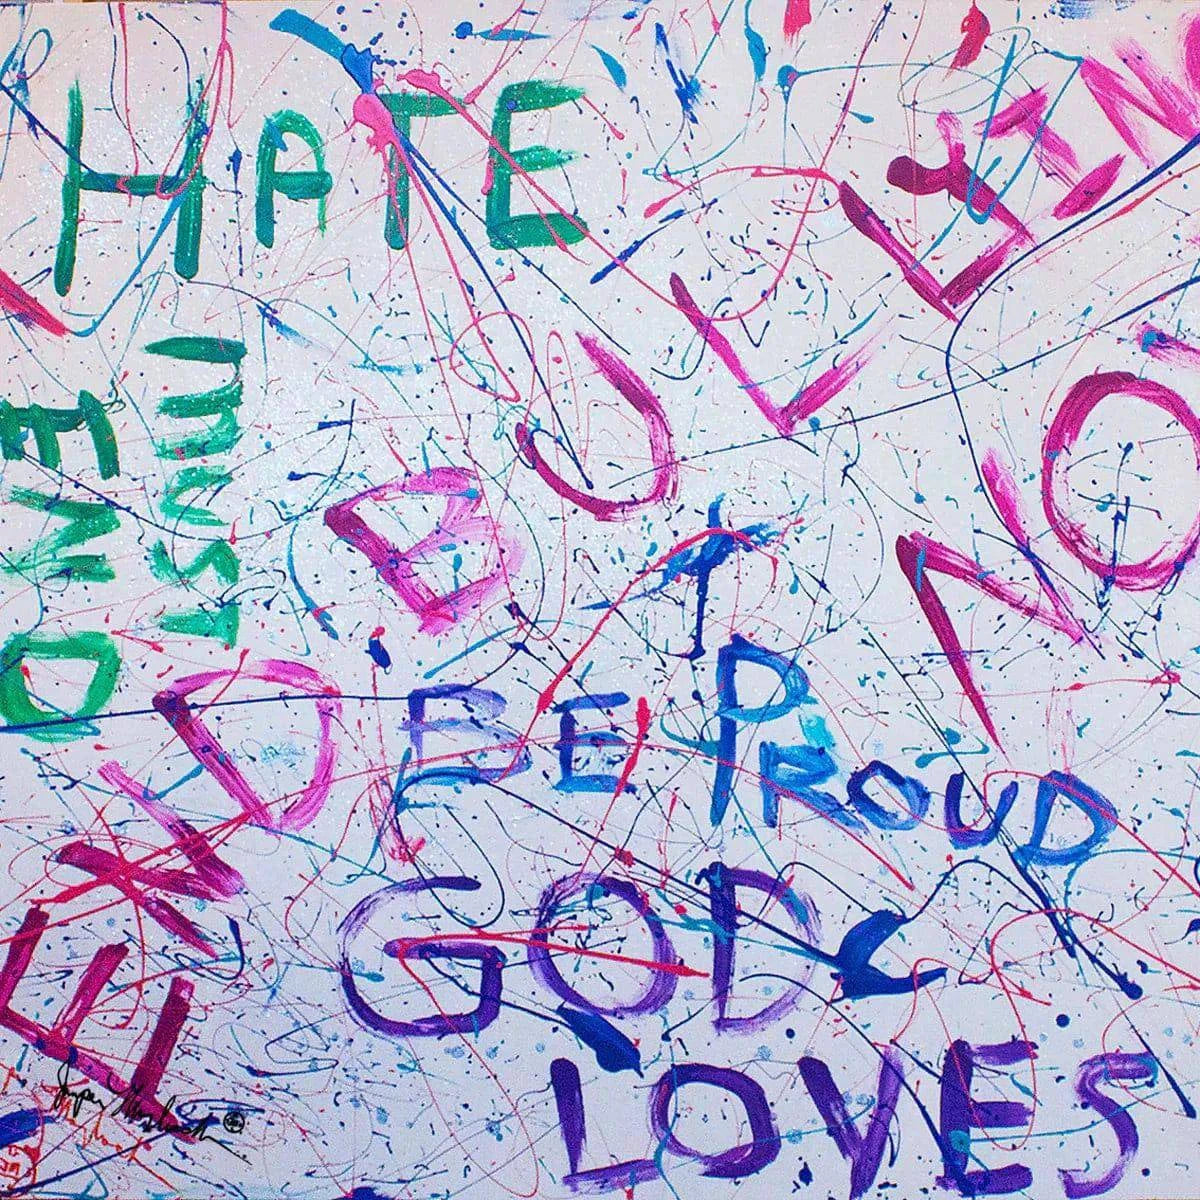 HATE
MUST
END
END
BULLEYING
NOW
BE PROUD
GOD
LOVES